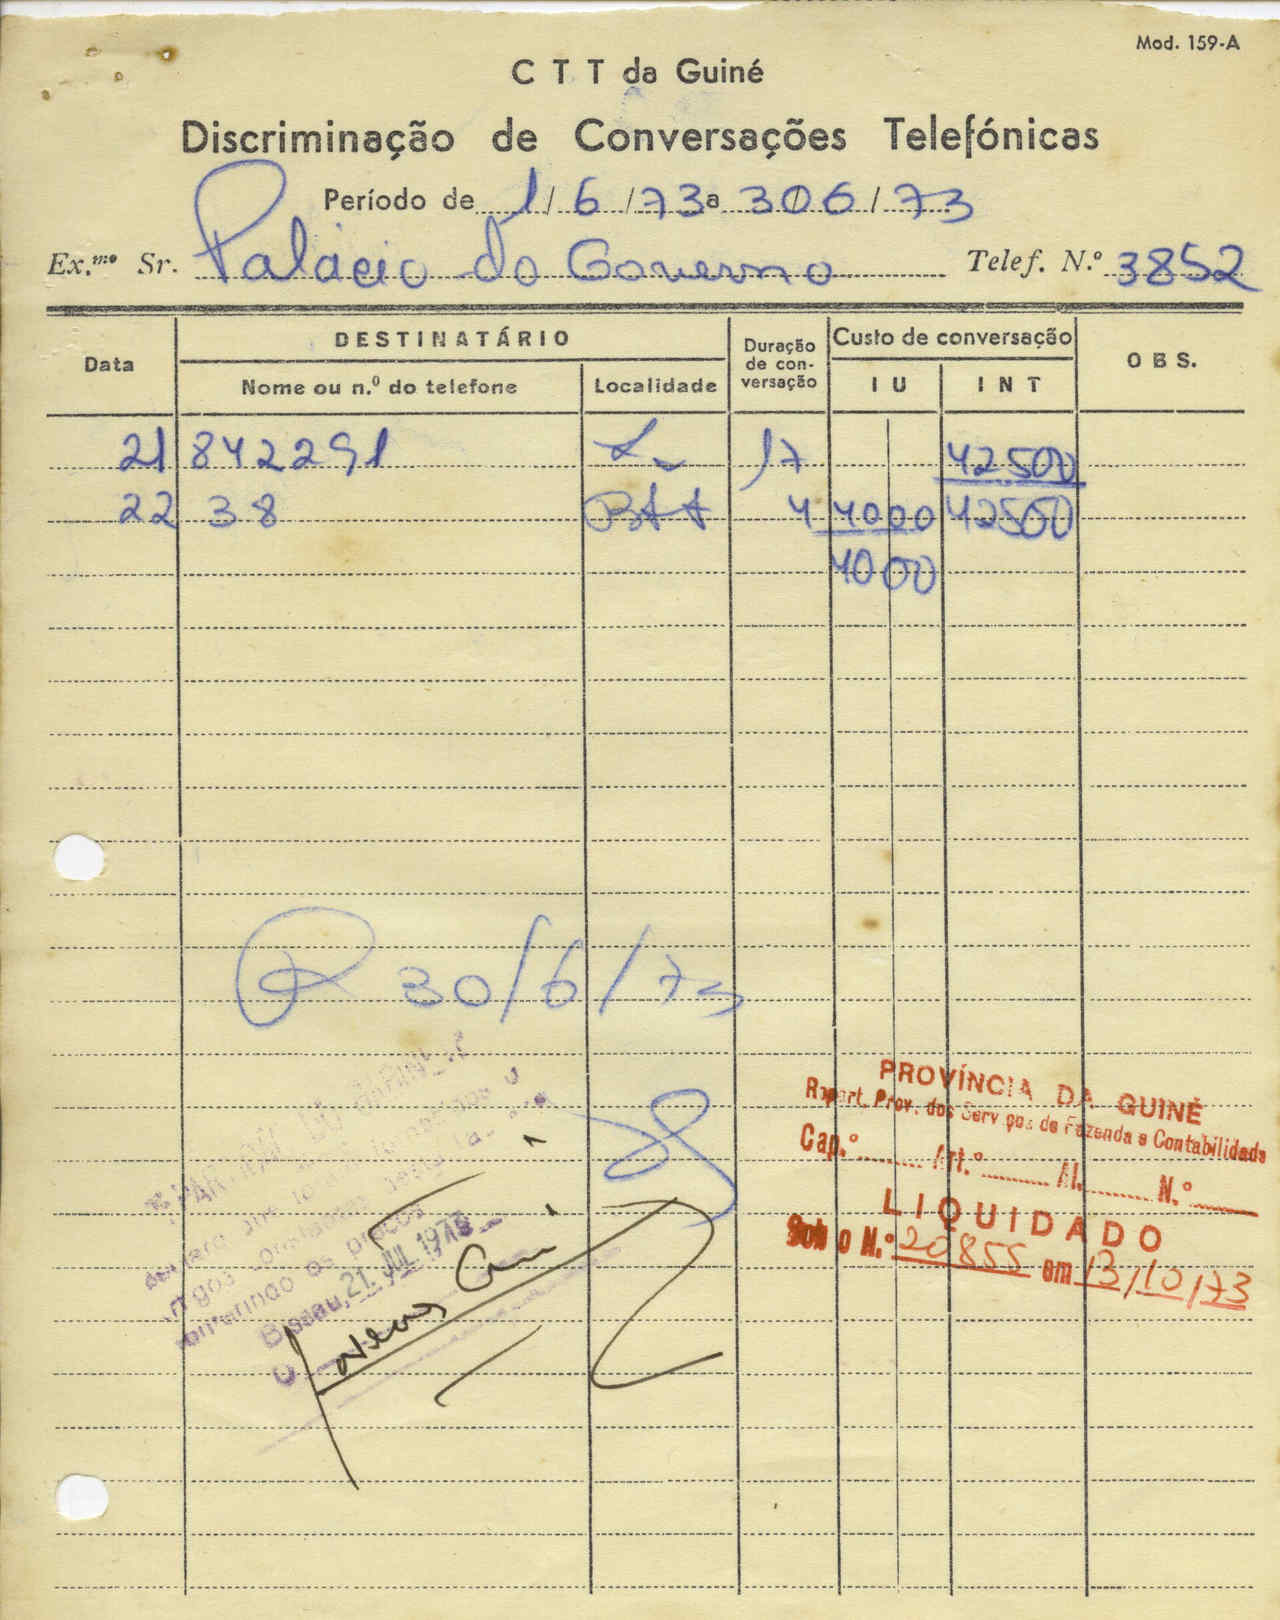 Mod. 159-A
C T T da Guiné
Discriminação de Conversações Telefónicas
Período de 1/6/73 a 30 6/73
Ex.mo Sr. Palácio do Governo Telef. N.º 3852
Data DESTINATÁRIO Duração de con-versação Custo de conversação OBS.
Nome ou n.º do telefone Localidade I U I N T
21 842291 17 42500
22 38 4 4000 42500
4000
30/6/73
PROVÍNCIA DA GUINÉ
Repart. Prov. dos Serviços de Fazenda e Contabilidade
Cap.º ........ Art.º ........ Al. ........ N.º ........
LIQUIDADO
Sob o N.º 20855 em 13/10/73
os preços
Bissau, 21. JUL. 1973